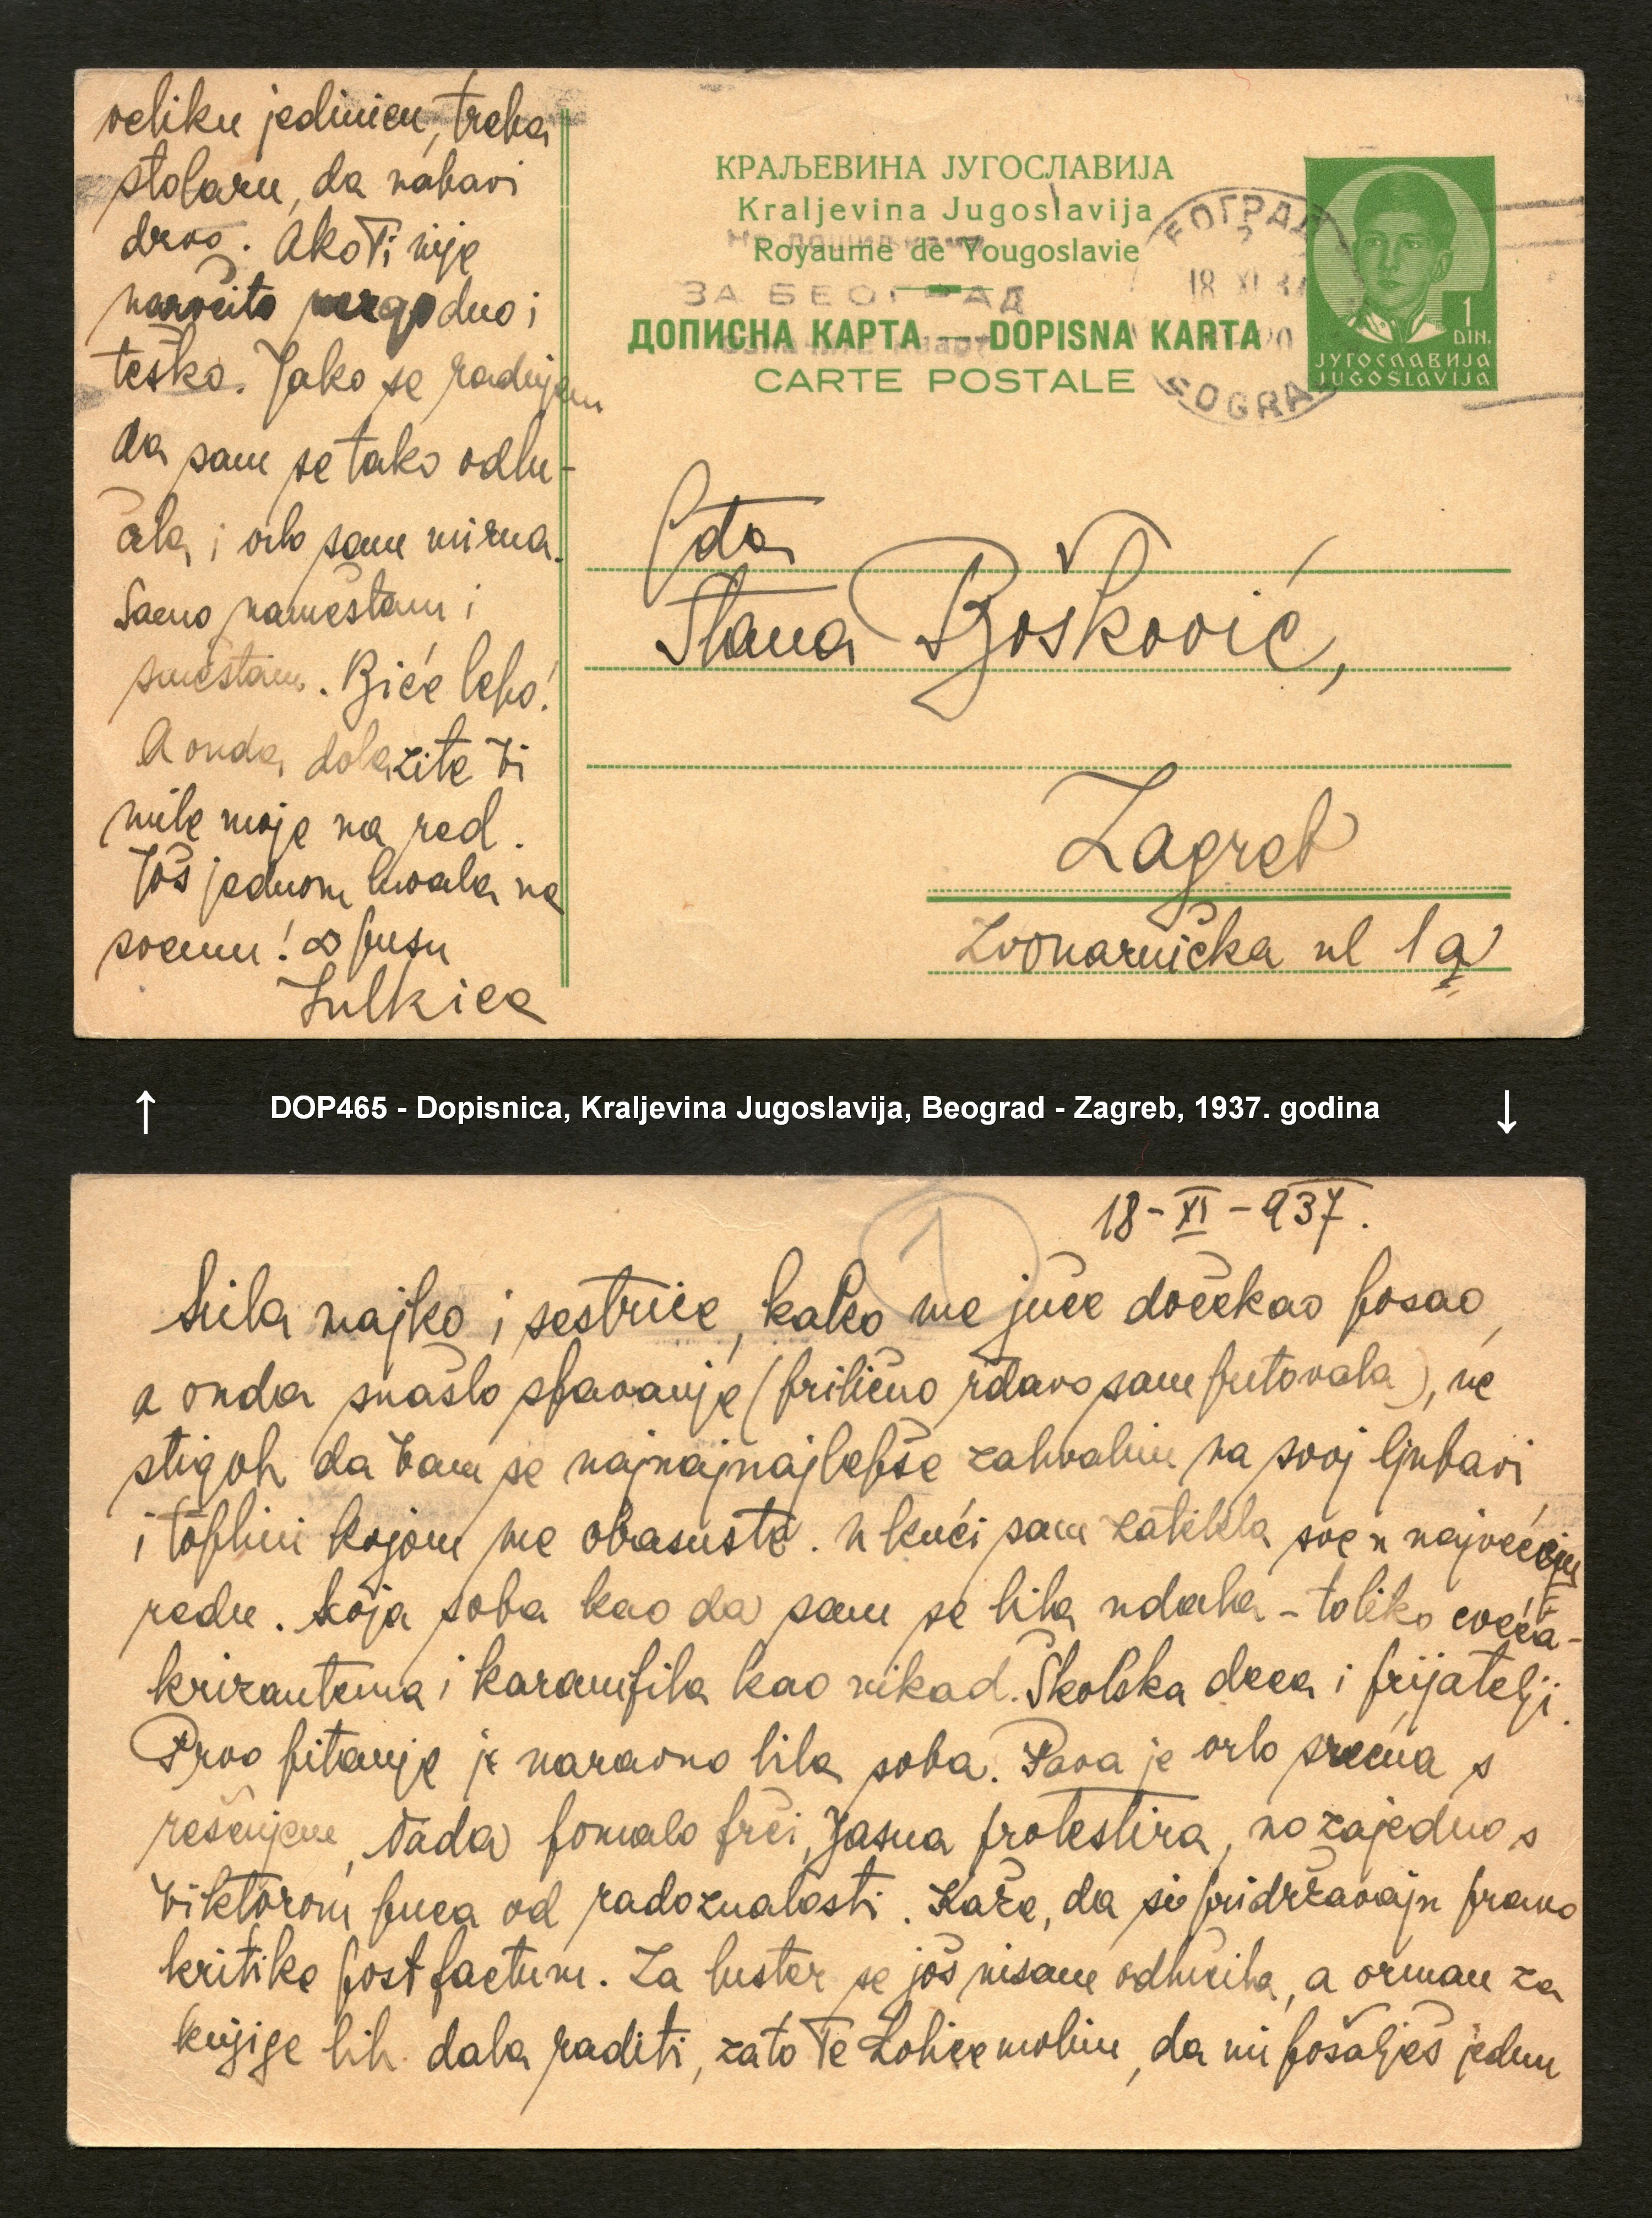 veliku jedinicu, treba
stolaru, da nabavi
drvo. Ako Ti nije
naročito nezgodno i
teško. Jako se radujem
da sam se tako odlu-
čila i vrlo sam mirna.
Samo nameštam i
smeštam. Biće lepo!
A onda dolazite Vi
mile moje na red.
Još jednom hvala na
svemu! ∞ pusu
КРАЉЕВИНА ЈУГОСЛАВИЈА
Kraljevina Jugoslavija
Royaume de Yougoslavie
ЗА БЕОГРАД
ДОПИСНА КАРТА — DOPISNA KARTA
CARTE POSTALE
ЕОГРАД
2
18 XI 37
20
EOGRA
1
DIN.
ЈУГОСЛАВИЈА
JUGOSLAVIJA
Gđa
Stana Bošković,
Zagreb
Zvonarnička ul 1a
↑ DOP465 - Dopisnica, Kraljevina Jugoslavija, Beograd - Zagreb, 1937. godina ↓
1
18-XI-937.
Mila majko i sestrice, kako me juče dočekao posao,
a onda snašlo spavanje (prilično rđavo sam putovala), ne
stigoh da Vam se najnajnajlepše zahvalim na svoj ljubavi
i toplini kojom me obasuste. U kući sam zatekla sve u najvećem
redu. Moja soba kao da sam se bila udala - toliko cveća -
krizantema i karamfila kao nikad. Školska deca i prijatelji.
Prvo pitanje je naravno bila soba. Sava je vrlo srećna s
rešenjem, Nada pomalo prči, Jasna protestira, no zajedno s
Viktorom puca od radoznalosti. Kaže, da si pridržavaju pravo
kritike post factum. Za luster se još nisam odlučila, a orman za
knjige bih dala raditi, zato Te molim, da mi pošalješ jednu